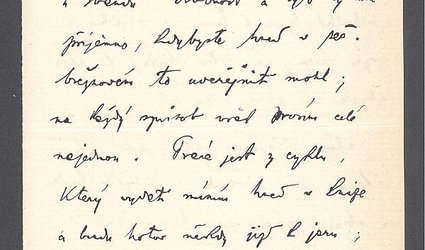 příjemno, kdybyste hned v seš.
březnovém to uveřejnit mohl;
na každý způsob však prosím celé
najednou. Práce jest z cyklu,
který vydati míním hned v knize
a budu hotov někdy již k jaru;